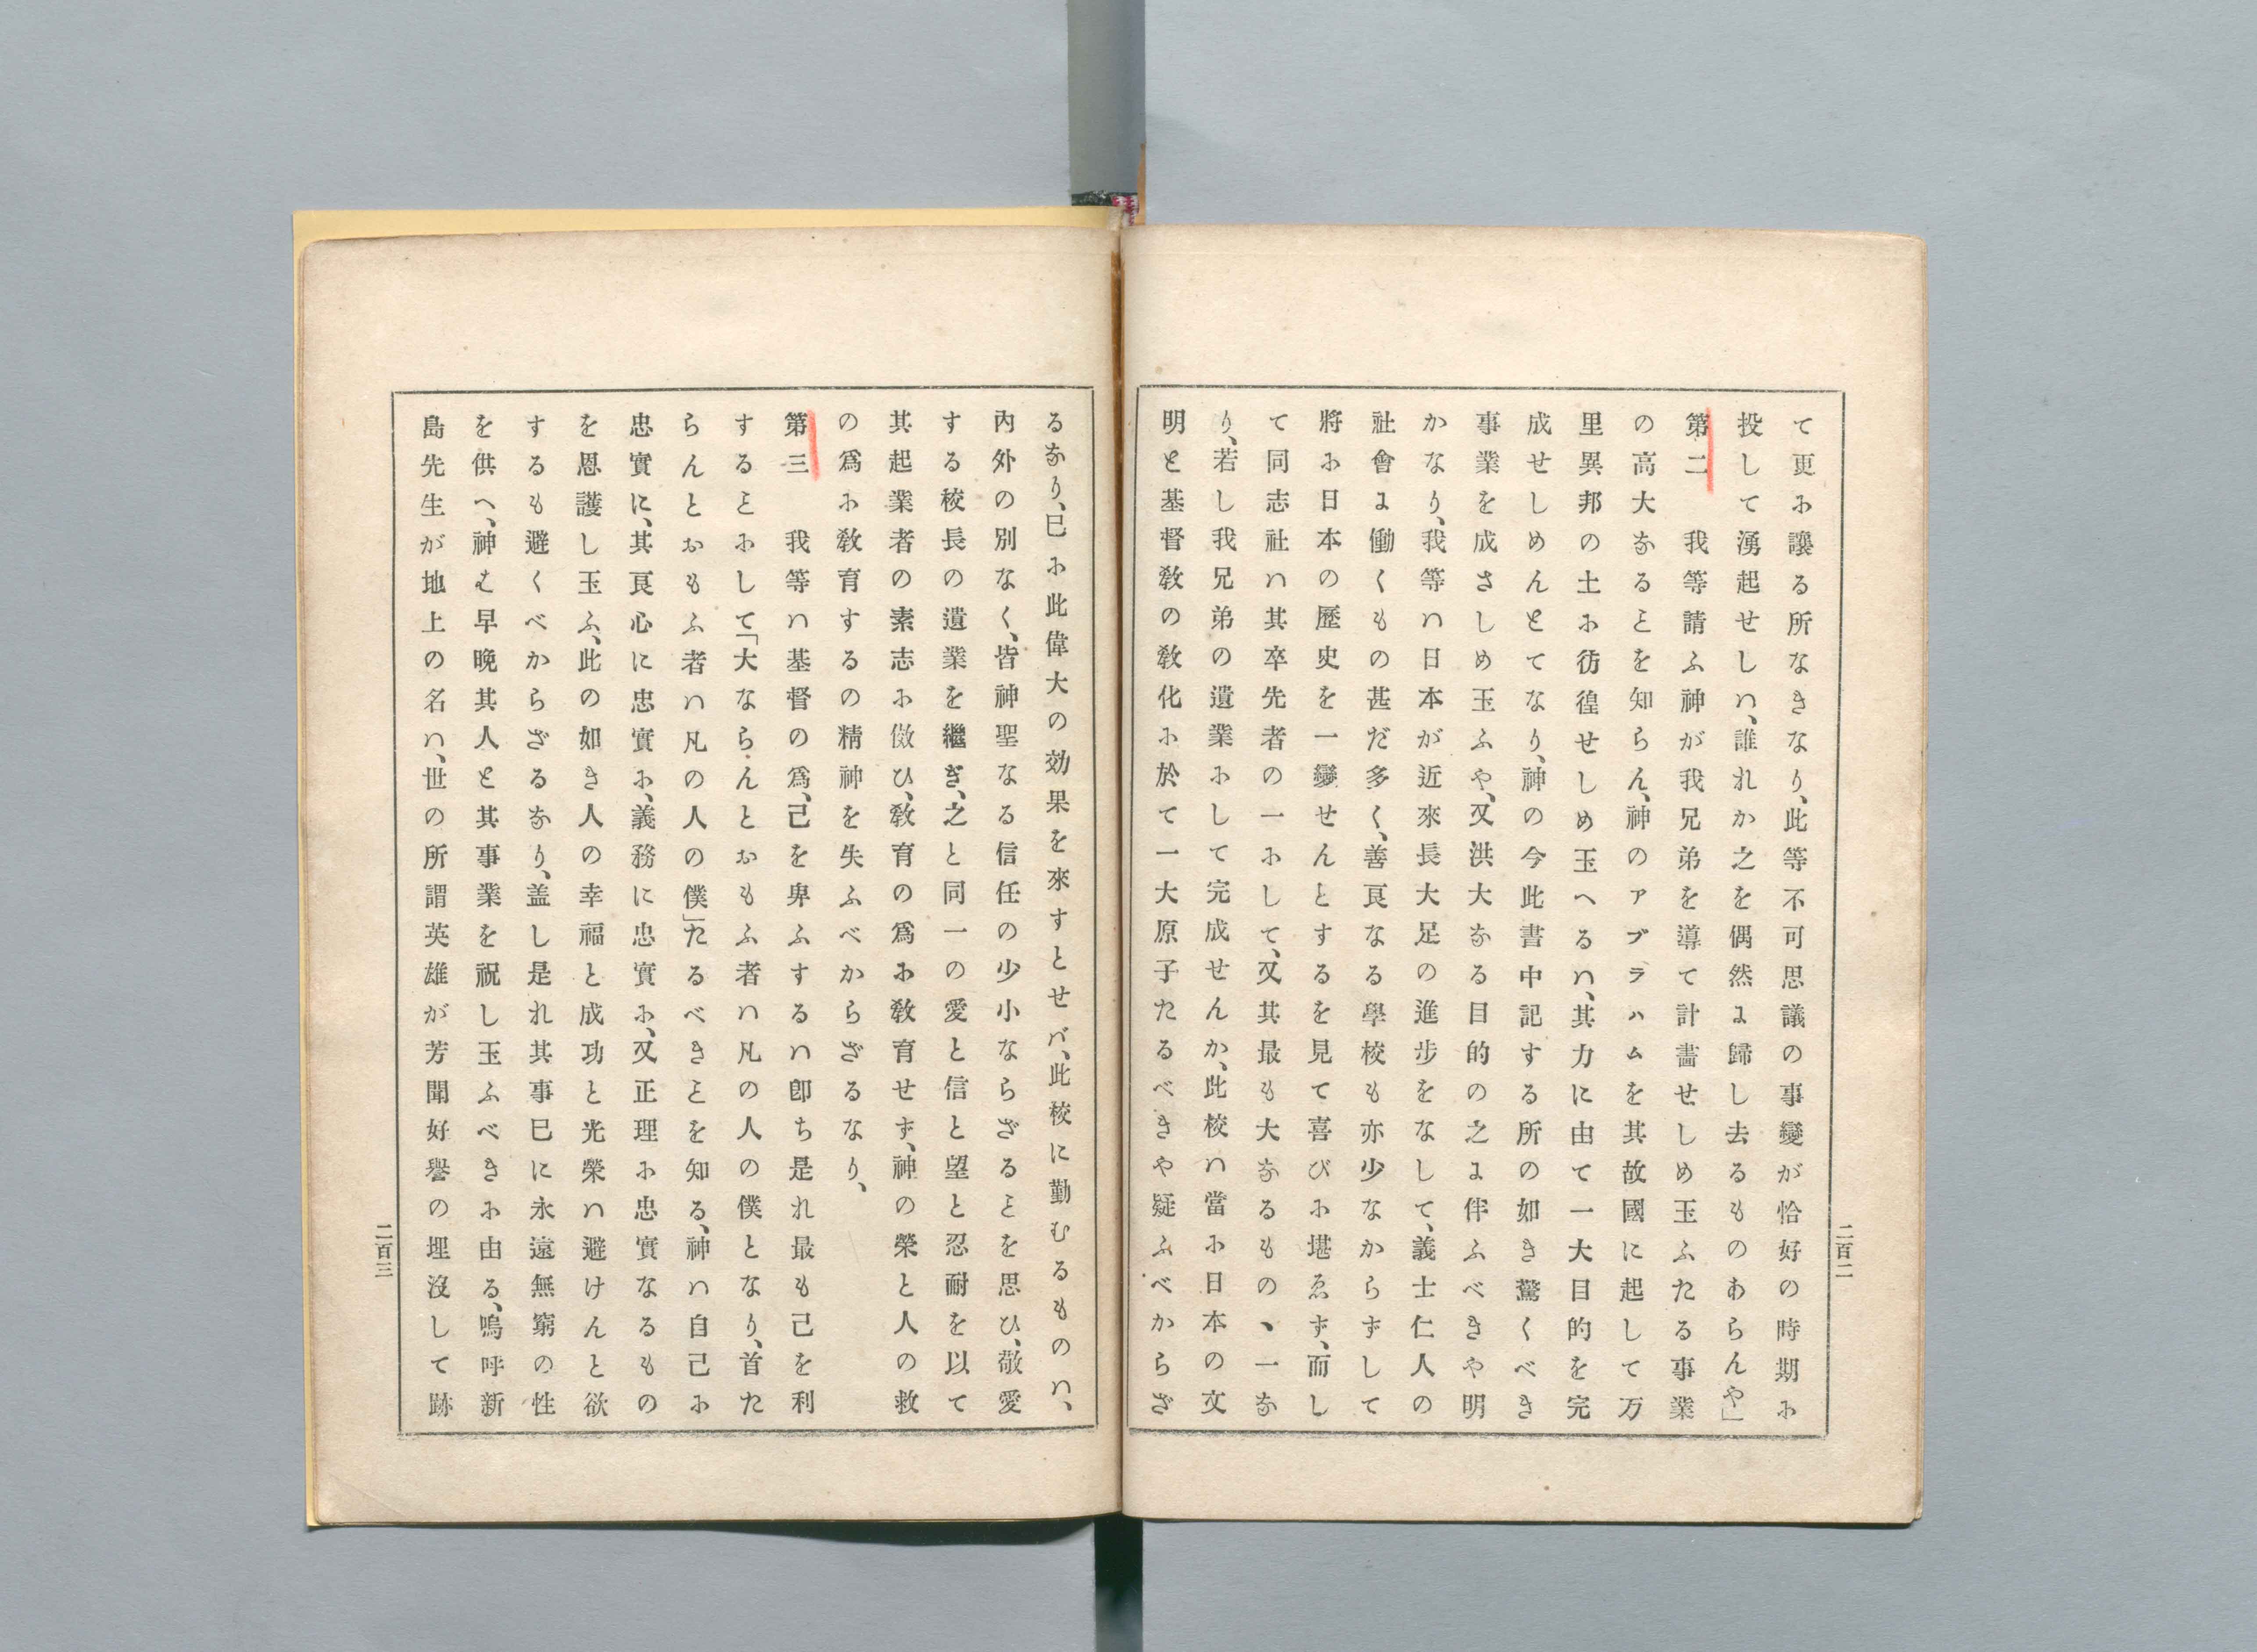 て更に讓る所なきなり、此等不可思議の事變が恰好の時期に
投して湧起せしハ、誰れか之を偶然に歸し去るものあらんや」
第二　我等請ふ神が我兄弟を導て計畵せしめ玉ふたる事業
の高大なることを知らん、神のアブラハムを其故國に起して万
里異邦の土に彷徨せしめ玉へるハ、其力に由て一大目的を完
成せしめんとてなり、神の今此書中記する所の如き驚くべき
事業を成さしめ玉ふや、又洪大なる目的の之に伴ふべきや明
かなり、我等ハ日本が近來長大足の進步をなして、義士仁人の
社會に働くもの甚だ多く、善良なる學校も亦少なからずして
將に日本の歷史を一變せんとするを見て喜びに堪ゑず、而し
て同志社ハ其卒先者の一にして、又其最も大なるものゝ一な
り、若し我兄弟の遺業にして完成せんか、此校ハ當に日本の文
明と基督敎の敎化に於て一大原子たるべきや疑ふべからざ
二百二
るなり、已に此偉大の効果を來すとせバ、此校に勤むるものハ、
內外の別なく、皆神聖なる信任の少小ならざることを思ひ、敬愛
する校長の遺業を繼ぎ、之と同一の愛と信と望と忍耐を以て
其起業者の素志に倣ひ、敎育の爲に敎育せず、神の榮と人の救
の爲に敎育するの精神を失ふべからざるなり、
第三　我等ハ基督の爲、己を卑ふするハ卽ち是れ最も己を利
することにして「大ならんとおもふ者ハ凡の人の僕となり、首た
らんとおもふ者ハ凡の人の僕」たるべきことを知る、神ハ自己に
忠實に、其良心に忠實に、義務に忠實に、又正理に忠實なるもの
を恩護し玉ふ、此の如き人の幸福と成功と光榮ハ避けんと欲
するも避くべからざるなり、盖し是れ其事已に永遠無窮の性
を供へ、神も早晚其人と其事業を祝し玉ふべきに由る、嗚呼新
島先生が地上の名ハ、世の所謂英雄が芳聞好譽の埋沒して跡
二百三